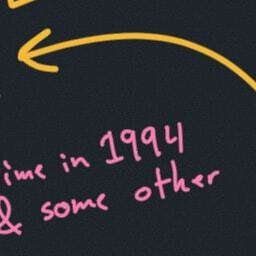 ime in 1994
& some other